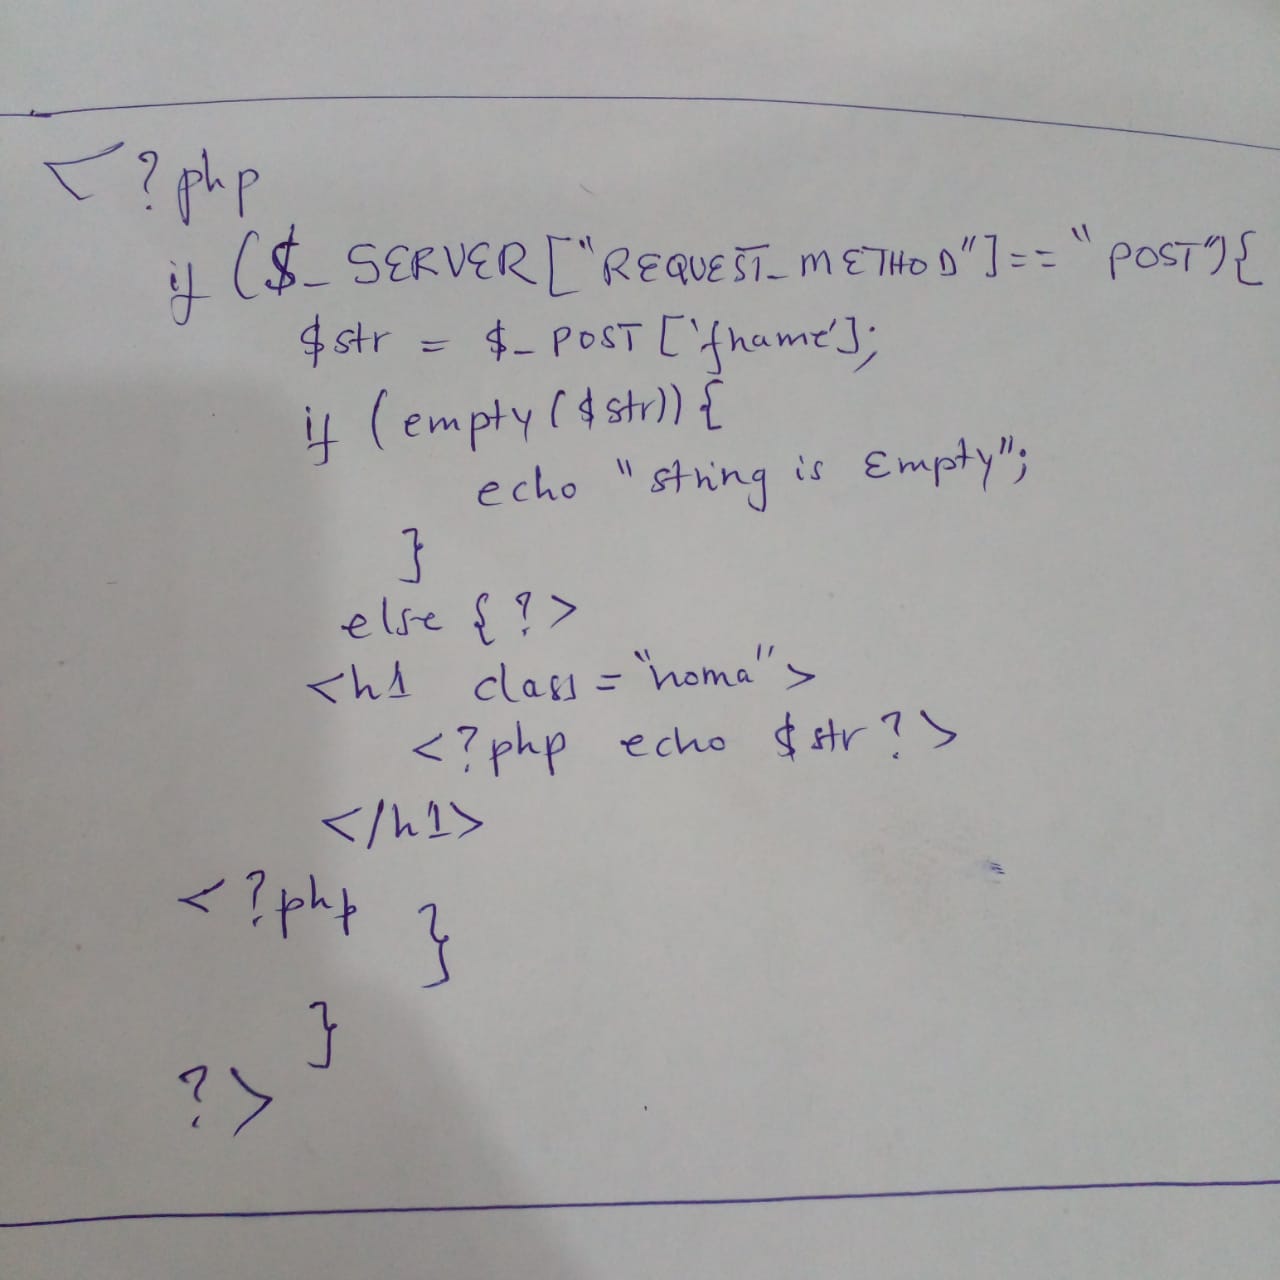 <?php
if ($_SERVER["REQUEST_METHOD"]=="POST"){
$str = $_POST['fname'];
if (empty($str)){
echo "string is Empty";
}
else {?>
<h1 class="noma">
<?php echo $str?>
</h1>
<?php }
}
?>